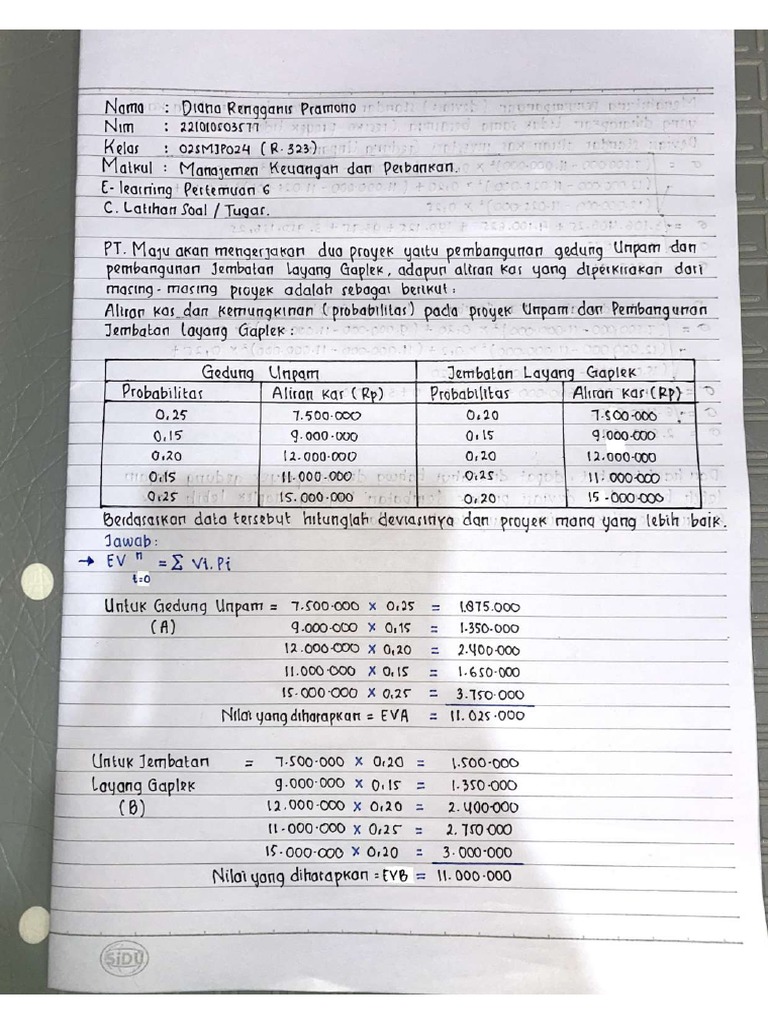 Nama : Diana Rengganis Pramono
Nim : 221010503577
Kelas : 02SMJP024 (R.323)
Matkul : Manajemen Keuangan dan Perbankan.
E-learning Pertemuan 6
C. Latihan Soal / Tugas.
PT. Maju akan mengerjakan dua proyek yaitu pembangunan gedung Unpam dan
pembangunan Jembatan Layang Gaplek, adapun aliran kas yang diperkirakan dari
masing-masing proyek adalah sebagai berikut:
Aliran kas dan kemungkinan (probabilitas) pada proyek Unpam dan Pembangunan
Jembatan layang Gaplek:
Gedung Unpam Jembatan Layang Gaplek
Probabilitas Aliran kas (Rp) Probabilitas Aliran kas (Rp)
0,25 7.500.000 0,20 7.500.000
0,15 9.000.000 0,15 9.000.000
0,20 12.000.000 0,20 12.000.000
0,15 11.000.000 0,25 11.000.000
0,25 15.000.000 0,20 15.000.000
Berdasarkan data tersebut hitunglah deviasinya dan proyek mana yang lebih baik.
Jawab:
→ EV n t=0 = Σ Vi.Pi
Untuk Gedung Unpam = 7.500.000 x 0,25 = 1.875.000
(A) 9.000.000 x 0,15 = 1.350.000
12.000.000 x 0,20 = 2.400.000
11.000.000 x 0,15 = 1.650.000
15.000.000 x 0,25 = 3.750.000
Nilai yang diharapkan = EVA = 11.025.000
Untuk Jembatan = 7.500.000 x 0,20 = 1.500.000
Layang Gaplek 9.000.000 x 0,15 = 1.350.000
(B) 12.000.000 x 0,20 = 2.400.000
11.000.000 x 0,25 = 2.750.000
15.000.000 x 0,20 = 3.000.000
Nilai yang diharapkan = EVB = 11.000.000
SiDU